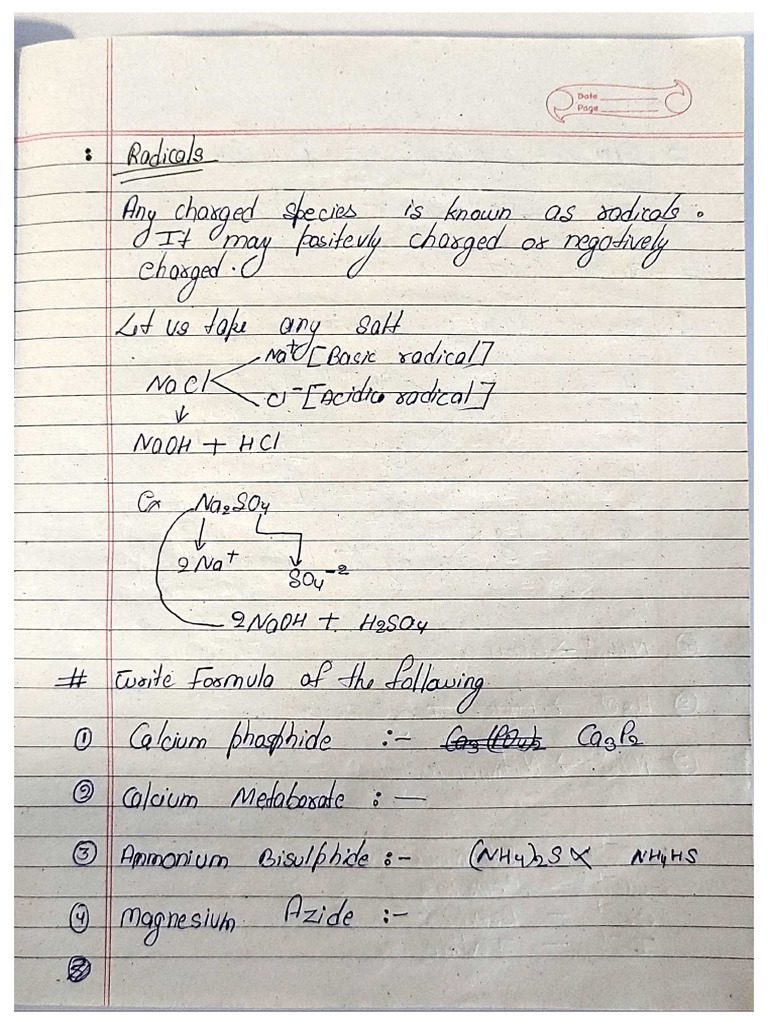 Date
Page
: Radicals
Any charged species is known as radicals.
It may positevly charged or negatively
charged.
Let us take any salt
Na+ [Basic radical]
NaCl
Cl- [Acidic radical]
NaOH + HCl
Ex Na2SO4
2Na+ SO4-2
2NaOH + H2SO4
# Write Formula of the following
① Calcium phosphide :- Ca3(PO4)2 Ca3P2
② Calcium Metaborate :-
③ Ammonium Bisulphide :- (NH4)2S × NH4HS
④ Magnesium Azide :-